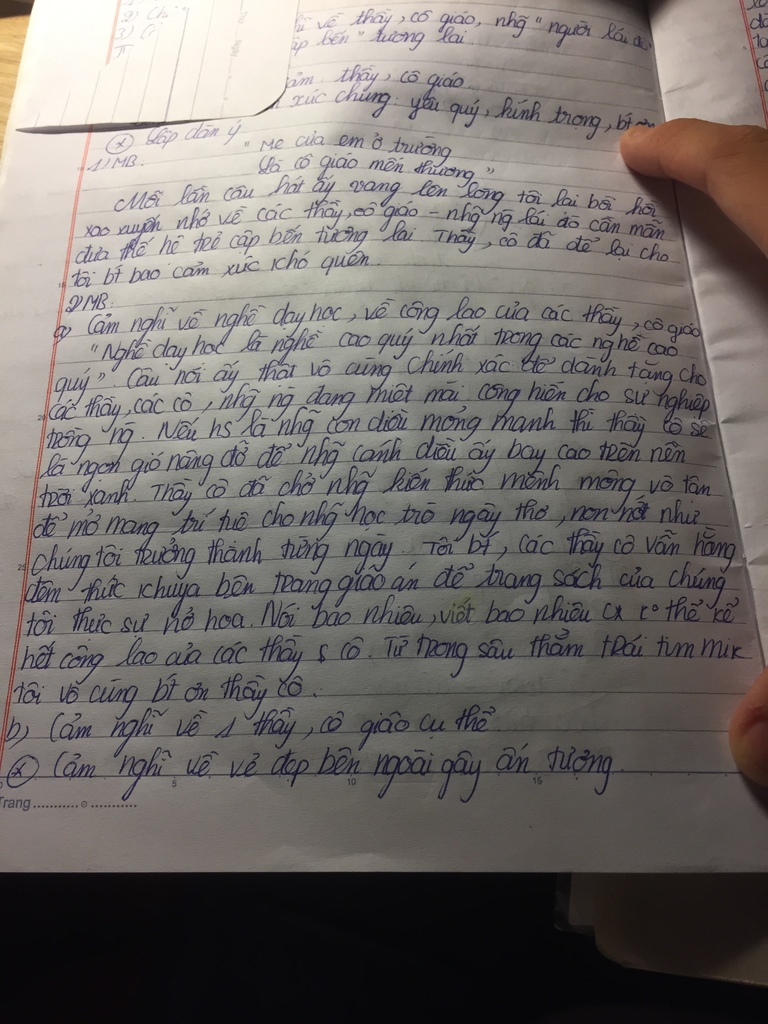 2) Chi
3) C
về thầy, cô giáo, nhg "người lái đò
cập bến" tương lai.
cảm thầy, cô giáo.
xúc chung: yêu quý, kính trọng, bt ơn
(*) Lập dàn ý
1) MB. "Mẹ của em ở trường
Là cô giáo mến thương"
Mỗi lần câu hát ấy vang lên lòng tôi lại bồi hồi
xao xuyến nhớ về các thầy, cô giáo - nhg ng lái đò cần mẫn
đưa thế hệ trẻ cập bến tương lai. Thầy, cô đã để lại cho
tôi bt bao cảm xúc khó quên.
2) MB.
a) Cảm nghĩ về nghề dạy học, về công lao của các thầy, cô giáo
"Nghề dạy học là nghề cao quý nhất trong các nghề cao
quý". Câu nói ấy thật vô cùng chính xác để dành tặng cho
các thầy, các cô, nhg ng đang miệt mài cống hiến cho sự nghiệp
trồng ng. Nếu hs là nhg con diều mỏng manh thì thầy cô sẽ
là ngọn gió nâng đỡ để nhg cánh diều ấy bay cao trên nền
trời xanh. Thầy cô đã chở nhg kiến thức mênh mông vô tận
để mở mang trí tuệ cho nhg học trò ngây thơ, non nớt như
chúng tôi trưởng thành từng ngày. Tôi bt, các thầy cô vẫn hằng
đêm thức khuya bên trang giáo án để trang sách của chúng
tôi thực sự nở hoa. Nói bao nhiêu, viết bao nhiêu cx k° thể kể
hết công lao của các thầy & cô. Từ trong sâu thẳm trái tim mik
tôi vô cùng bt ơn thầy cô.
b) Cảm nghĩ về 1 thầy, cô giáo cụ thể
(*) Cảm nghĩ về vẻ đẹp bên ngoài gây ấn tượng.
5 10 15
Trang